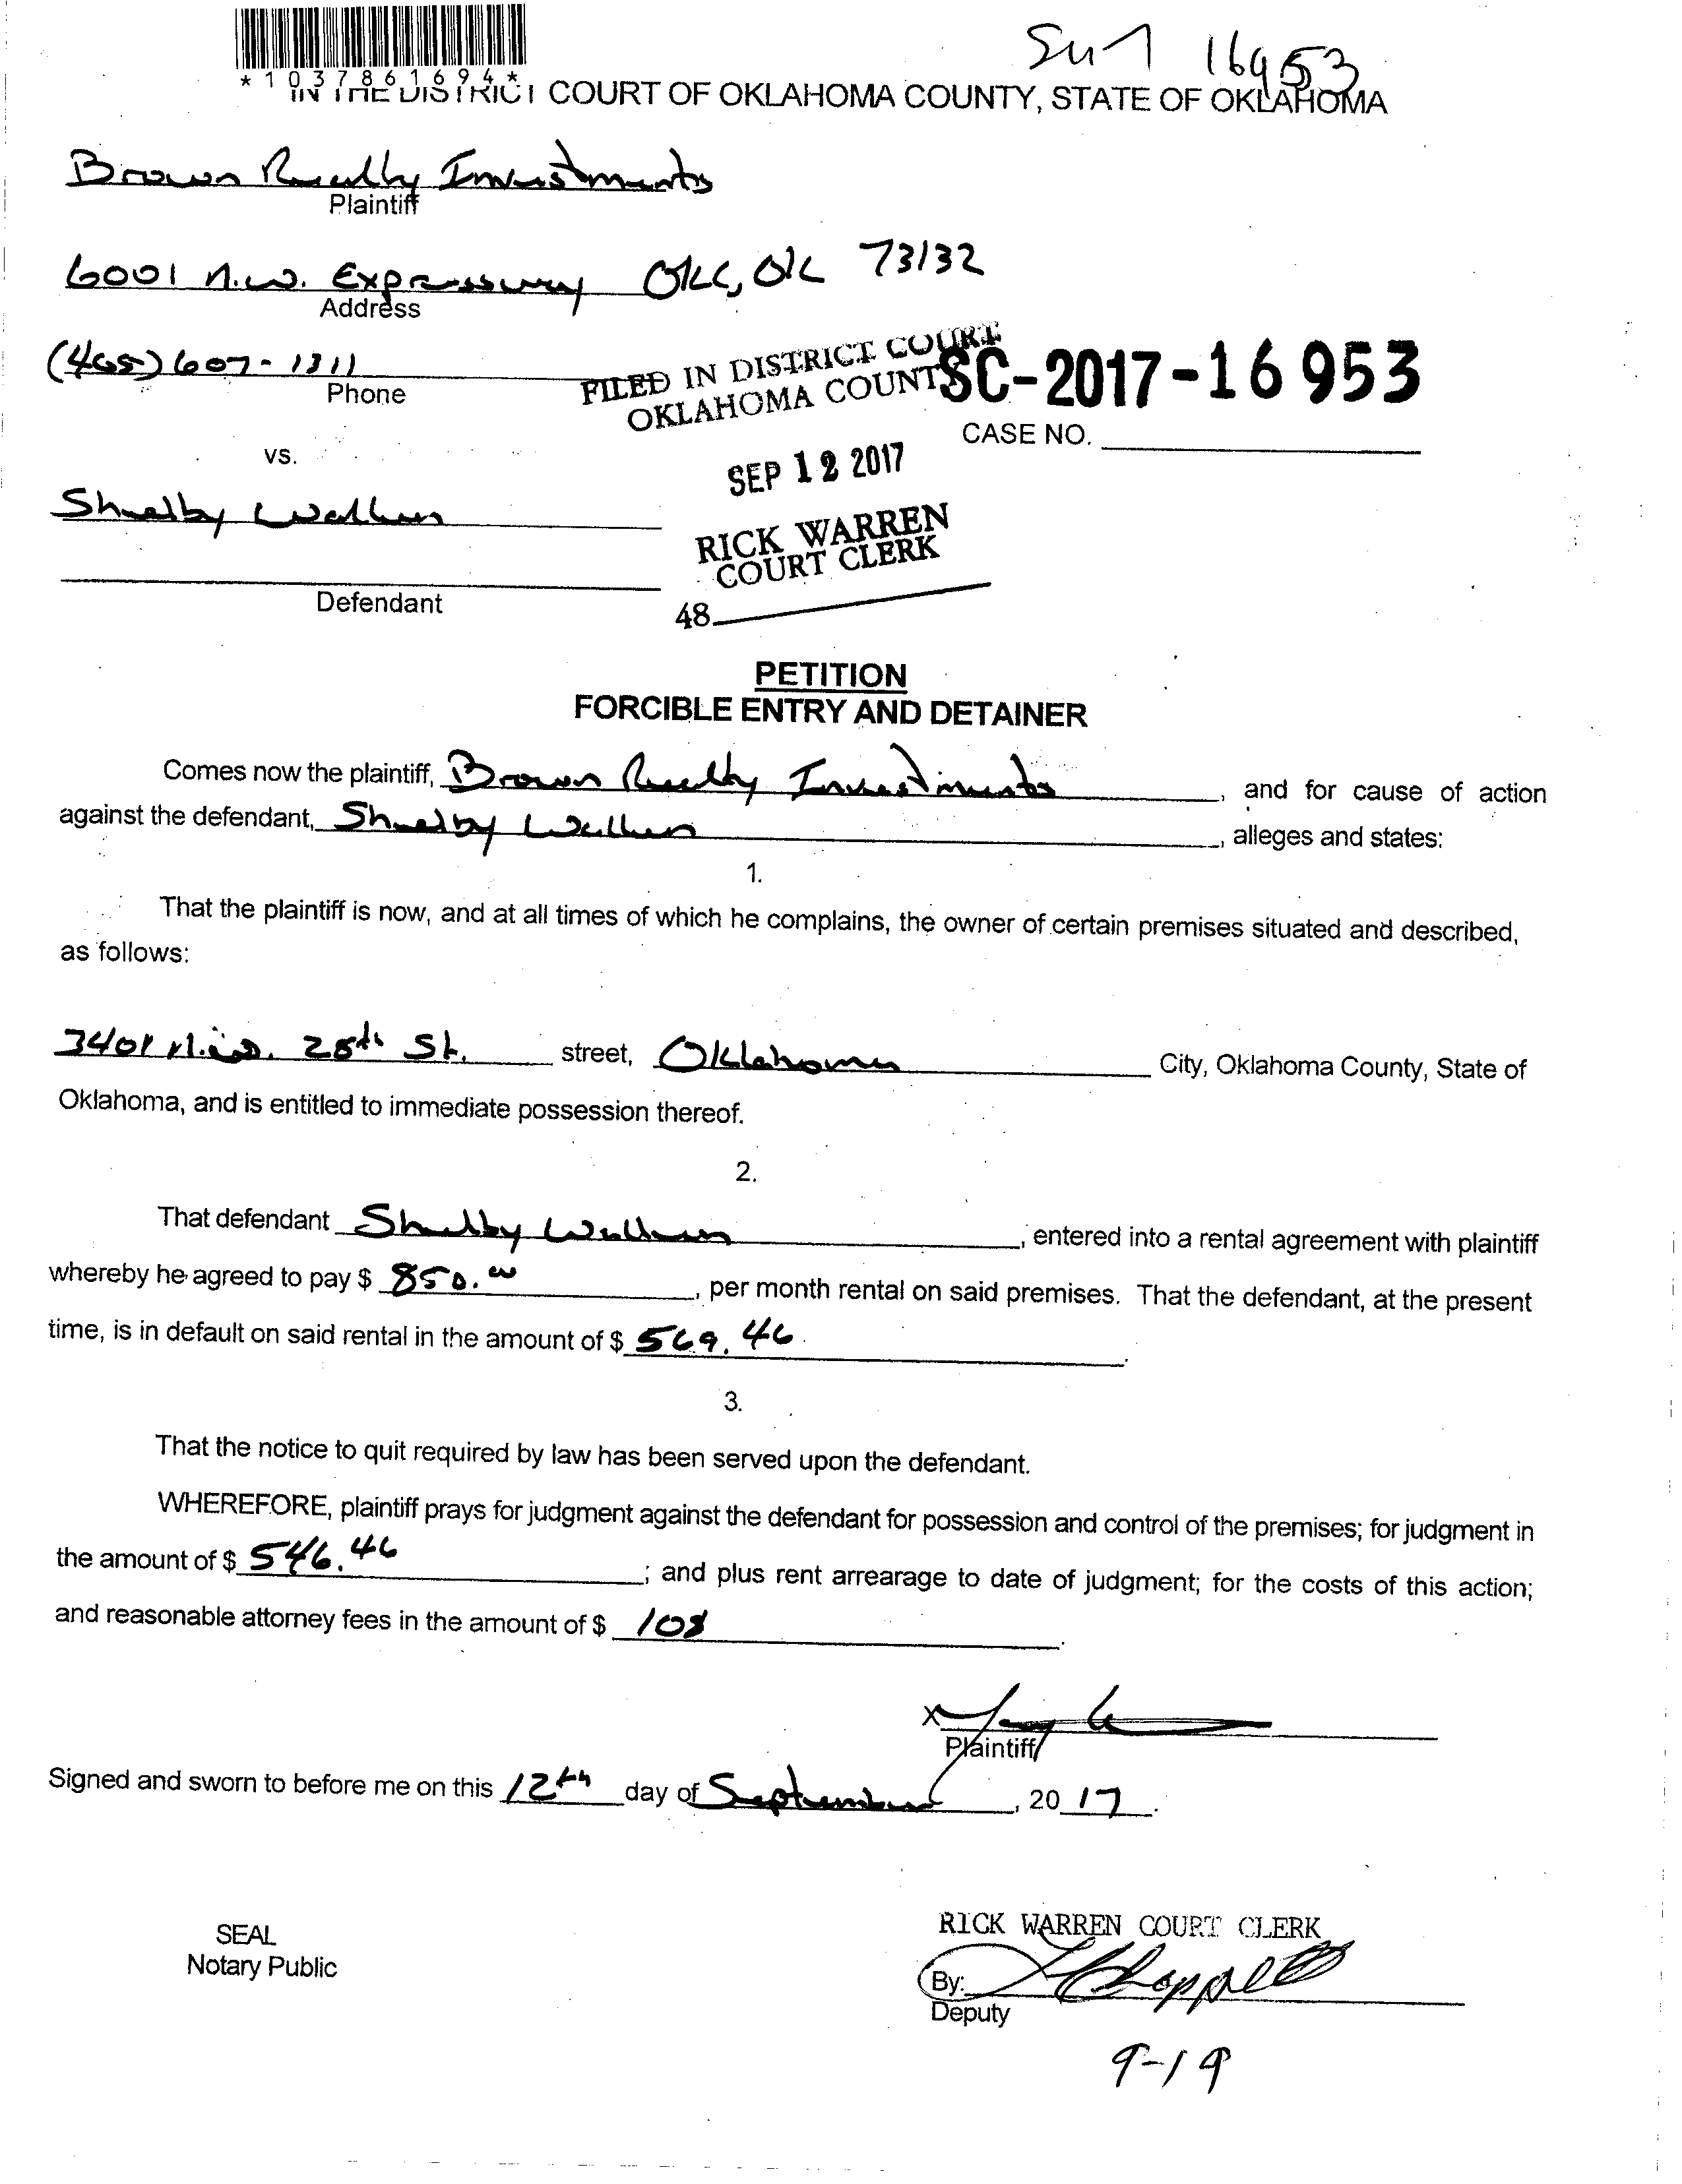 *1037861694*
16953
IN THE DISTRICT COURT OF OKLAHOMA COUNTY, STATE OF OKLAHOMA
Brown Realty Investments
Plaintiff
6001 N.W. Expressway OKC, OK 73132
Address
(405) 607-1311
Phone
FILED IN DISTRICT COURT
OKLAHOMA COUNTY
SC-2017-16953
CASE NO.
vs.
SEP 12 2017
Shelby
RICK WARREN
COURT CLERK
Defendant
48
PETITION
FORCIBLE ENTRY AND DETAINER
Comes now the plaintiff, Brown Realty Investments, and for cause of action
against the defendant, Shelby, alleges and states:
1.
That the plaintiff is now, and at all times of which he complains, the owner of certain premises situated and described,
as follows:
3401 N.W. 28th St. street, Oklahoma City, Oklahoma County, State of
Oklahoma, and is entitled to immediate possession thereof.
2.
That defendant Shelby, entered into a rental agreement with plaintiff
whereby he agreed to pay $ 850.00, per month rental on said premises. That the defendant, at the present
time, is in default on said rental in the amount of $ 569.46.
3.
That the notice to quit required by law has been served upon the defendant.
WHEREFORE, plaintiff prays for judgment against the defendant for possession and control of the premises; for judgment in
the amount of $ 546.46; and plus rent arrearage to date of judgment; for the costs of this action;
and reasonable attorney fees in the amount of $ 108.
X
Plaintiff
Signed and sworn to before me on this 12th day of September, 2017.
SEAL
Notary Public
RICK WARREN COURT CLERK
By:
Deputy
9-19